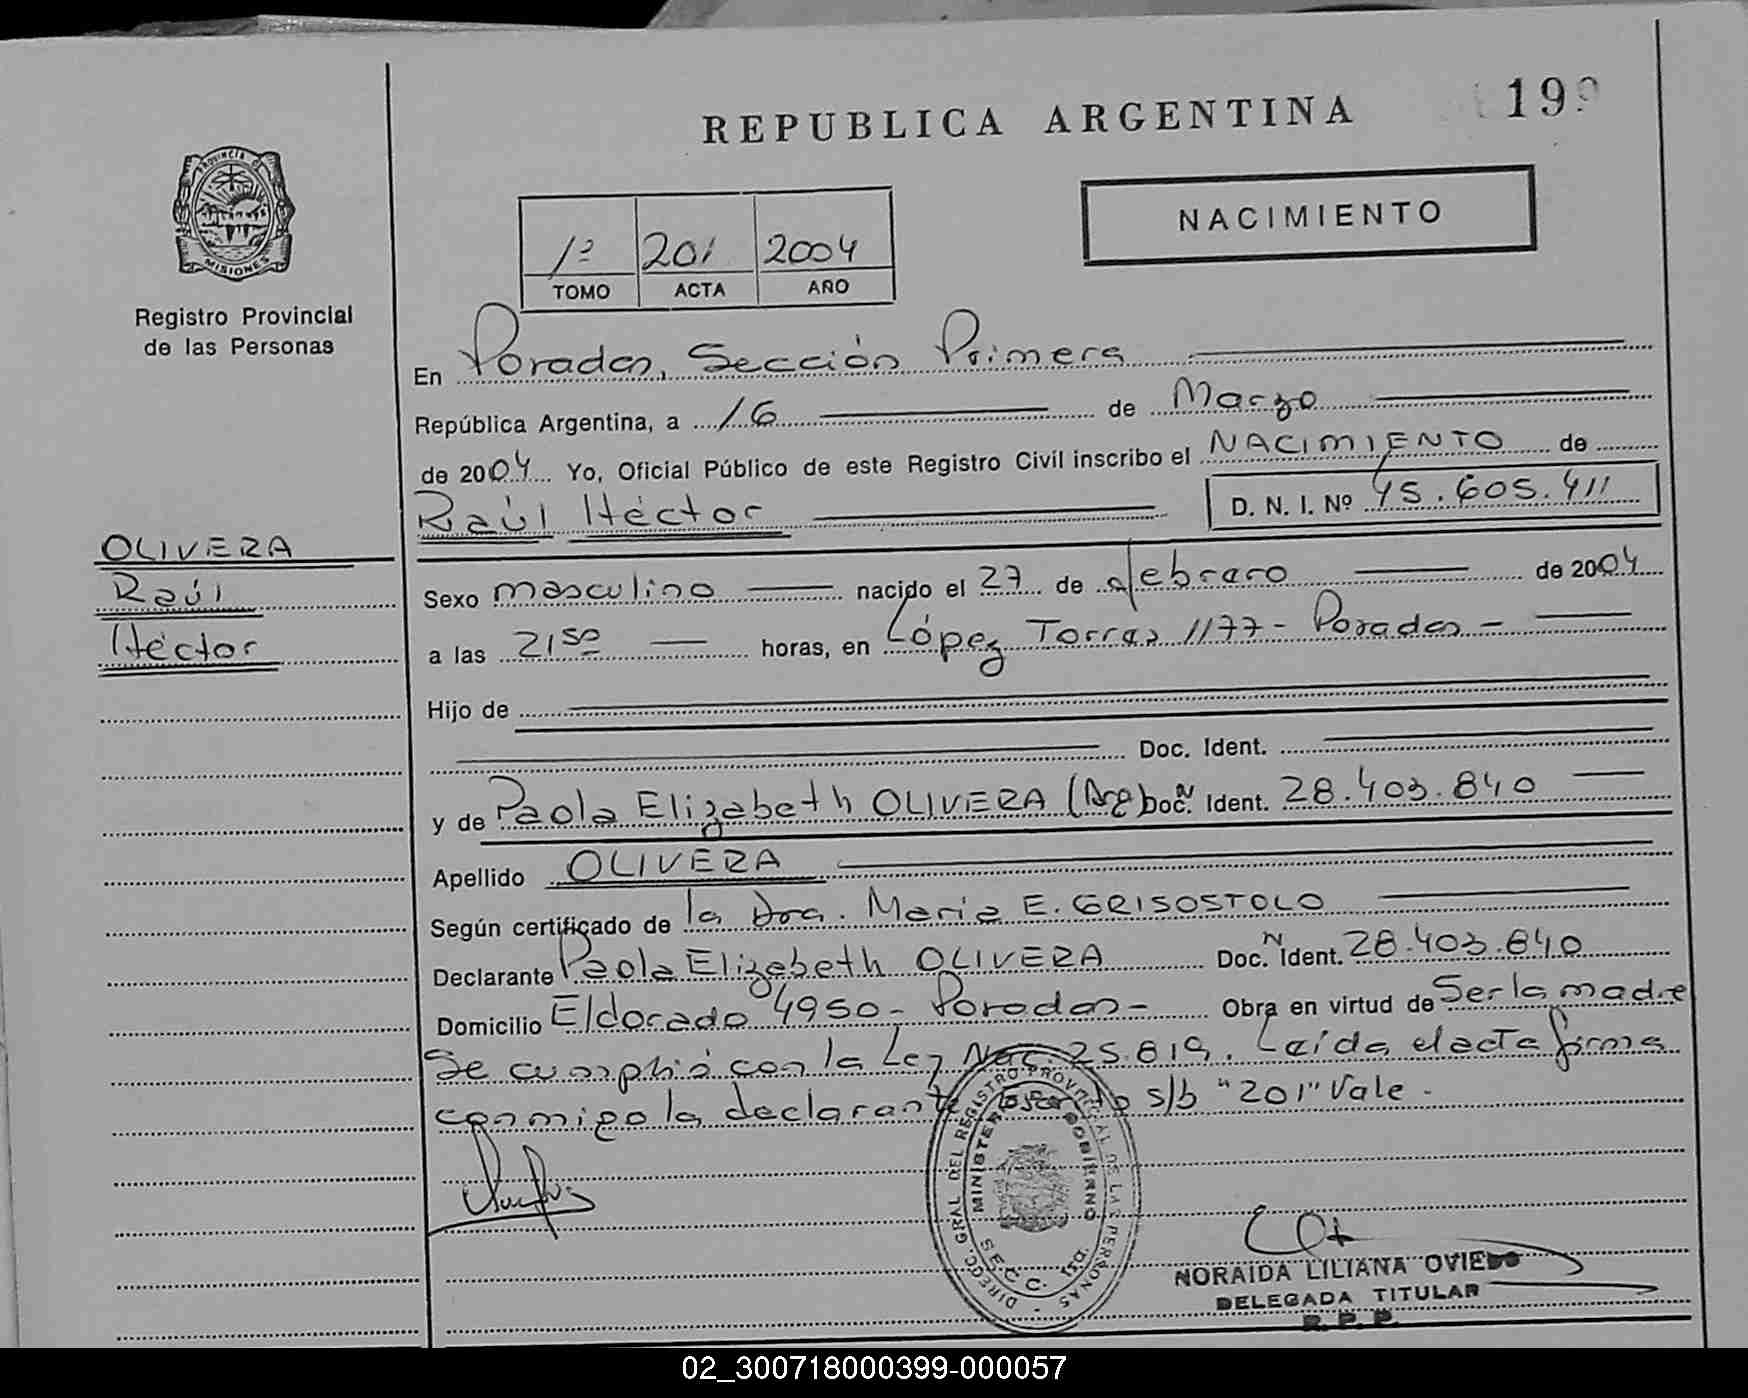 REPUBLICA ARGENTINA
199
PROVINCIA DE
MISIONES
Registro Provincial
de las Personas
NACIMIENTO
1º 201 2004
TOMO ACTA AÑO
En Posadas, Sección Primera
República Argentina, a 16 de Marzo
de 2004 Yo, Oficial Público de este Registro Civil inscribo el NACIMIENTO de
Raúl Héctor D. N. I. Nº 45.605.411
OLIVERA
Raúl
Héctor
Sexo masculino nacido el 27 de febrero de 2004
a las 21 50 horas, en López Torres 1177 - Posadas -
Hijo de
Doc. Ident.
y de Paola Elizabeth OLIVERA (Arg) Doc. N Ident. 28.403.840
Apellido OLIVERA
Según certificado de la Dra. Maria E. GRISOSTOLO
Declarante Paola Elizabeth OLIVERA Doc. N Ident. 28.403.840
Domicilio Eldorado 4950 - Posadas - Obra en virtud de Ser la madre
Se cumplió con la Ley Nac. 25.819. Leída el acta firma
conmigo la declarante s/b "201" Vale -
DIRECC. GRAL. DEL REGISTRO PROVINCIAL DE LAS PERSONAS
MINISTERIO GOBIERNO
SECC. 1RA.
NORAIDA LILIANA OVIEDO
DELEGADA TITULAR
R. P. P.
02_300718000399-000057